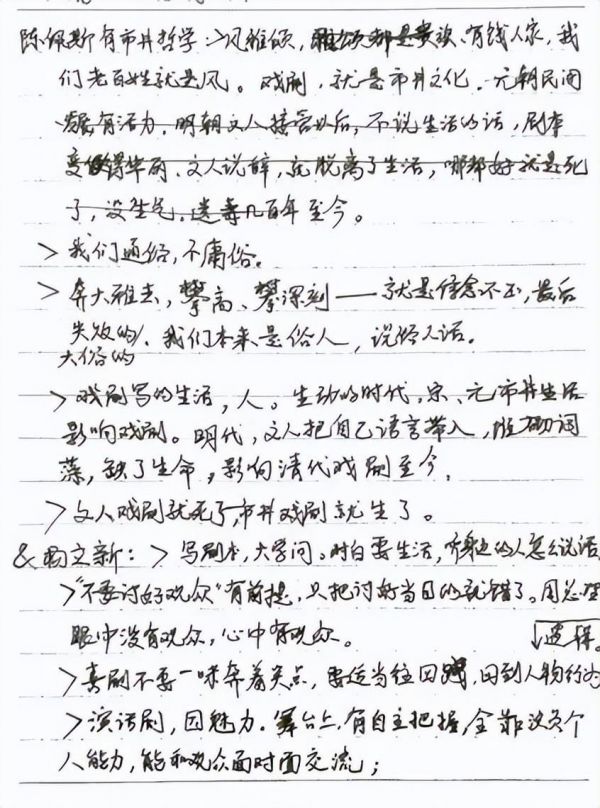 陈佩斯有市井哲学:>风雅颂,雅颂都是贵族、有钱人家,我
们老百姓就是风。戏剧,就是市井文化。元朝民间
发展有活力,明朝文人接管以后,不说生活的话,剧本
变得华丽、文人说辞,就脱离了生活,哪都好就是死
了,没生气。遗毒几百年至今。
> 我们通俗,不庸俗。
> 奔大雅去,攀高、攀深刻——就是信念不正,最后
失败的。我们本来是俗人,说俗人话。
大俗的
> 戏剧写的生活,人。生动的时代,宋、元市井生活
影响戏剧。明代,文人把自己语言带入,堆砌词
藻,缺了生命,影响清代戏剧至今。
> 文人戏剧就死了,市井戏剧就生了。
& 杨立新:> 写剧本,大学问。对白要生活,听身边的人怎么说话
> "不要讨好观众"有前提,只把讨好当目的就错了。用总理
眼中没有观众,心中有观众。
逻辑。
> 喜剧不要一味奔着笑点,要适当往回,回到人物行为
> 演话剧,因魅力。舞台上,有自主把握,全靠演员个
人能力,能和观众面对面交流;